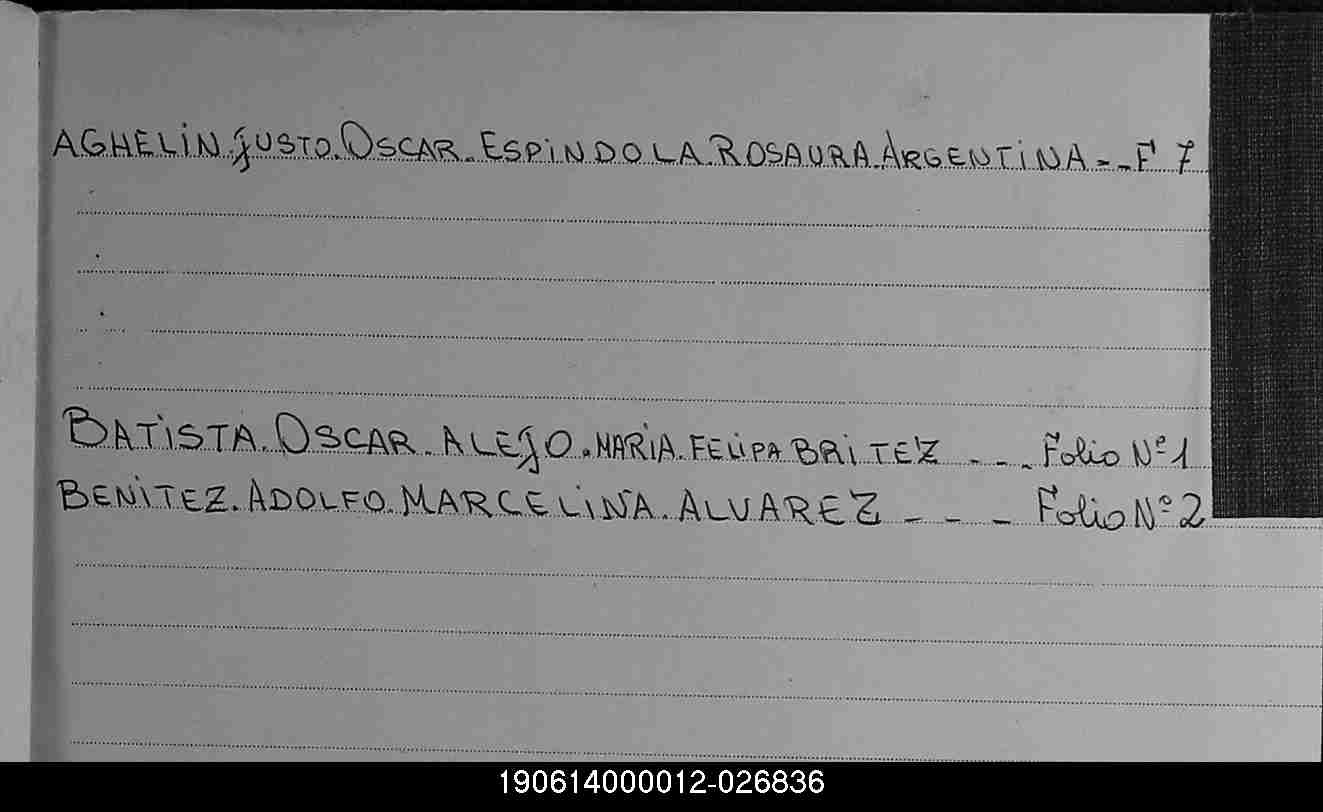 AGHELIN. JUSTO. OSCAR. ESPINDOLA. ROSAURA. ARGENTINA - - F° 7
BATISTA. OSCAR. ALEJO. MARIA. FELIPA BRITEZ - - - Folio Nº 1
BENITEZ. ADOLFO. MARCELINA. ALVAREZ - - - Folio Nº 2
190614000012-026836